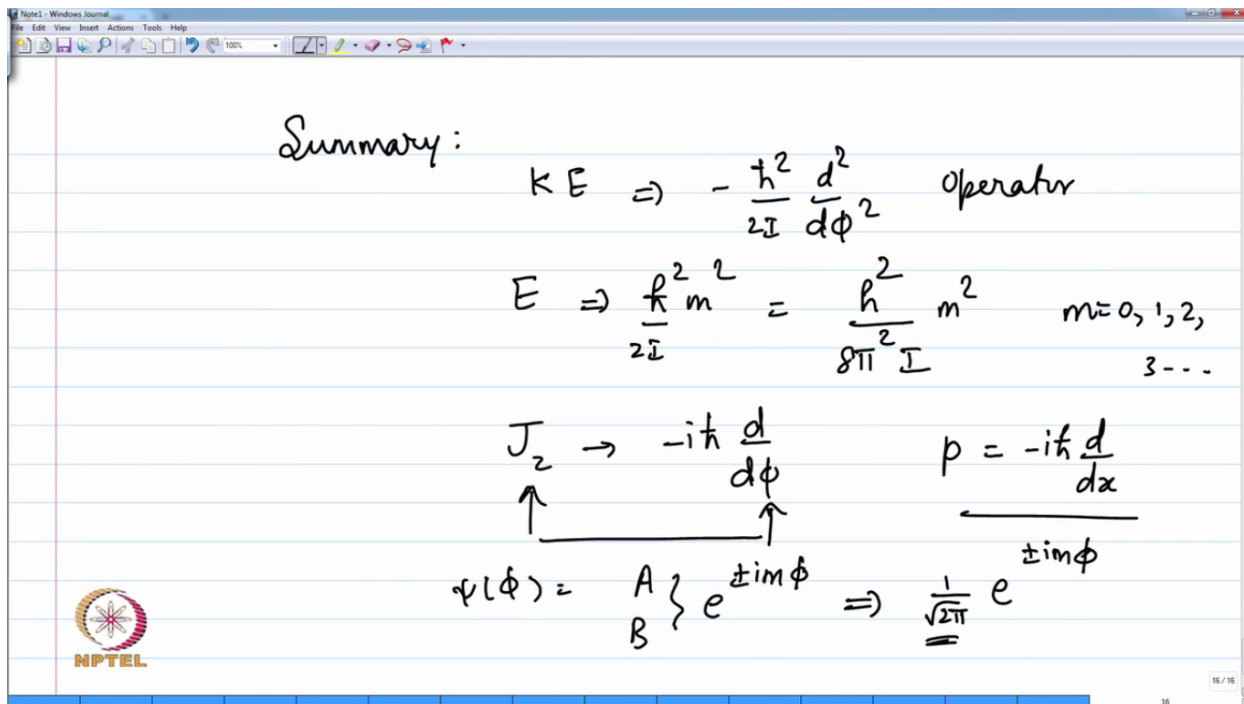 Note1 - Windows Journal
File Edit View Insert Actions Tools Help
100%
Summary:
KE ⇒ - ħ²/2I d²/dϕ² Operator
E ⇒ ħ²/2I m² = h²/8π²I m² m=0, 1, 2,
3 - - -
J_z → -iħ d/dϕ p = -iħ d/dx
ψ(ϕ) = A B } e^{±imϕ} ⇒ 1/√2π e^{±imϕ}
NPTEL
16 / 16
16